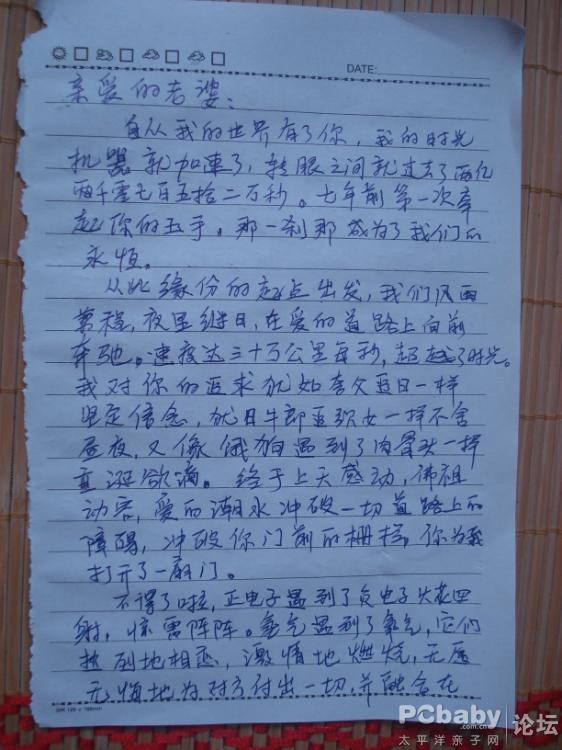 DATE:
亲爱的老婆：
自从我的世界有了你，我的时光
机器就加速了，转眼之间就过去了两亿
两千零七百五拾二万秒。七年前第一次牵
起你的玉手，那一刹那成为了我们的
永恒。
从此缘份的起点出发，我们风雨
兼程，夜里继日，在爱的道路上向前
奔驰。速度达三十万公里每秒，超越了时光。
我对你的追求犹如夸父追日一样
坚定信念，犹日牛郎追织女一样不舍
昼夜，又像饿狗遇到了肉骨头一样
垂涎欲滴。终于上天感动，佛祖
动容，爱的潮水冲破一切道路上的
障碍，冲破你门前的栅栏，你为我
打开了一扇门。
不得了啦，正电子遇到了负电子火花四
射，惊雷阵阵。氢气遇到了氧气，它们
热烈地相恋，激情地燃烧，无怨
无悔地为对方付出一切，并融合在
PCbaby 论坛
太平洋亲子网